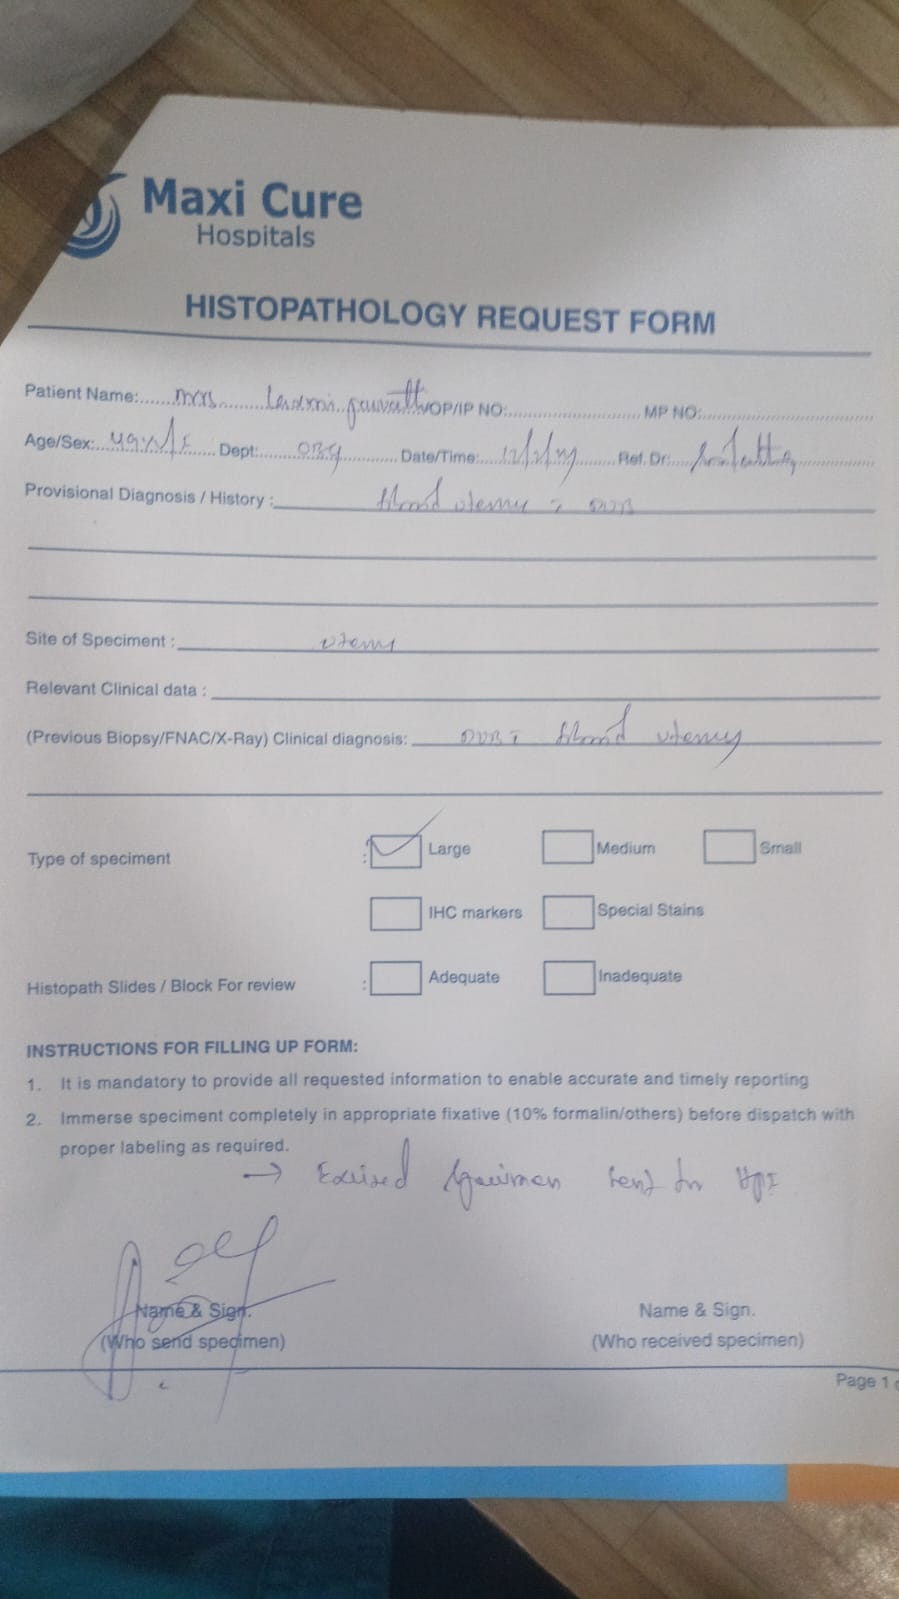 Maxi Cure
Hospitals
HISTOPATHOLOGY REQUEST FORM
Patient Name: Mrs OP/IP NO: MP NO:
Age/Sex: Dept: OBG Date/Time: Ref. Dr:
Provisional Diagnosis / History :
Site of Speciment :
Relevant Clinical data :
(Previous Biopsy/FNAC/X-Ray) Clinical diagnosis:
Type of speciment : Large Medium Small
IHC markers Special Stains
Histopath Slides / Block For review : Adequate Inadequate
INSTRUCTIONS FOR FILLING UP FORM:
1. It is mandatory to provide all requested information to enable accurate and timely reporting
2. Immerse speciment completely in appropriate fixative (10% formalin/others) before dispatch with
proper labeling as required.
→ Excised specimen sent for
Name & Sign. Name & Sign.
(Who send specimen) (Who received specimen)
Page 1